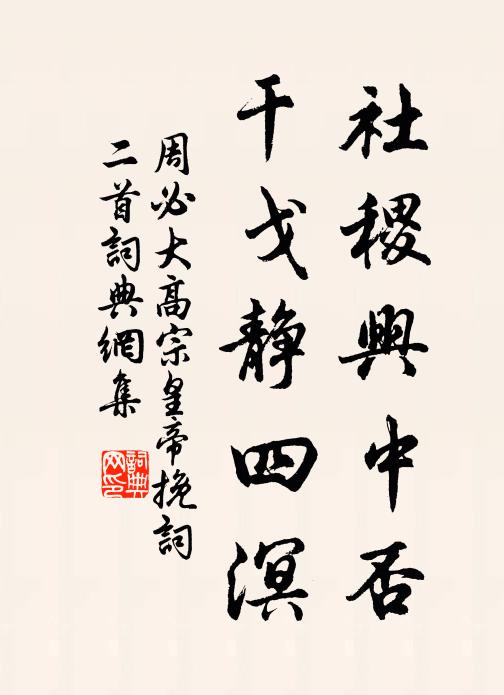 社稷興中否
干戈靜四溟
周必大高宗皇帝挽詞
二首詞典網集
詞典
网印